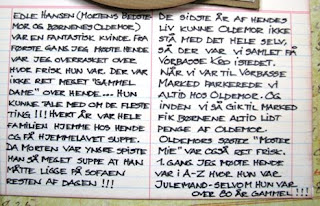 EDLE HANSEN (MORTENS BEDSTE-
MOR OG BØRNENES OLDEMOR)
VAR EN FANTASTISK KVINDE FRA
FØRSTE GANG JEG MØDTE HENDE
VAR JEG OVERRASKET OVER
HVOR FRISK HUN VAR. DER VAR
IKKE RET MEGET "GAMMEL
DAME" OVER HENDE... HUN
KUNNE TALE MED OM DE FLESTE
TING!!! HVERT ÅR VAR HELE
FAMILIEN HJEMME HOS HENDE
OG FÅ HJEMMELAVET SUPPE.
DA MORTEN VAR YNGRE SPISTE
HAN SÅ MEGET SUPPE AT HAN
MÅTTE LIGGE PÅ SOFAEN
RESTEN AF DAGEN!!!
DE SIDSTE ÅR AF HENDES
LIV KUNNE OLDEMOR IKKE
STÅ MED DET HELE SELV,
SÅ DER VAR VI SAMLET PÅ
VORBASSE KRO ISTEDET.
NÅR VI VAR TIL VORBASSE
MARKED PARKEREDE VI
ALTID HOS OLDEMOR. OG
INDEN VI SÅ GIK TIL MARKED
FIK BØRNENE ALTID LIDT
PENGE AF OLDEMOR.
OLDEMORS SØSTER "MOSTER
MIE" VAR OGSÅ RET FRISK.
1. GANG JEG MØDTE HENDE
VAR I A-Z HVOR HUN VAR
JULEMAND - SELVOM HUN VAR
OVER 80 ÅR GAMMEL!!!